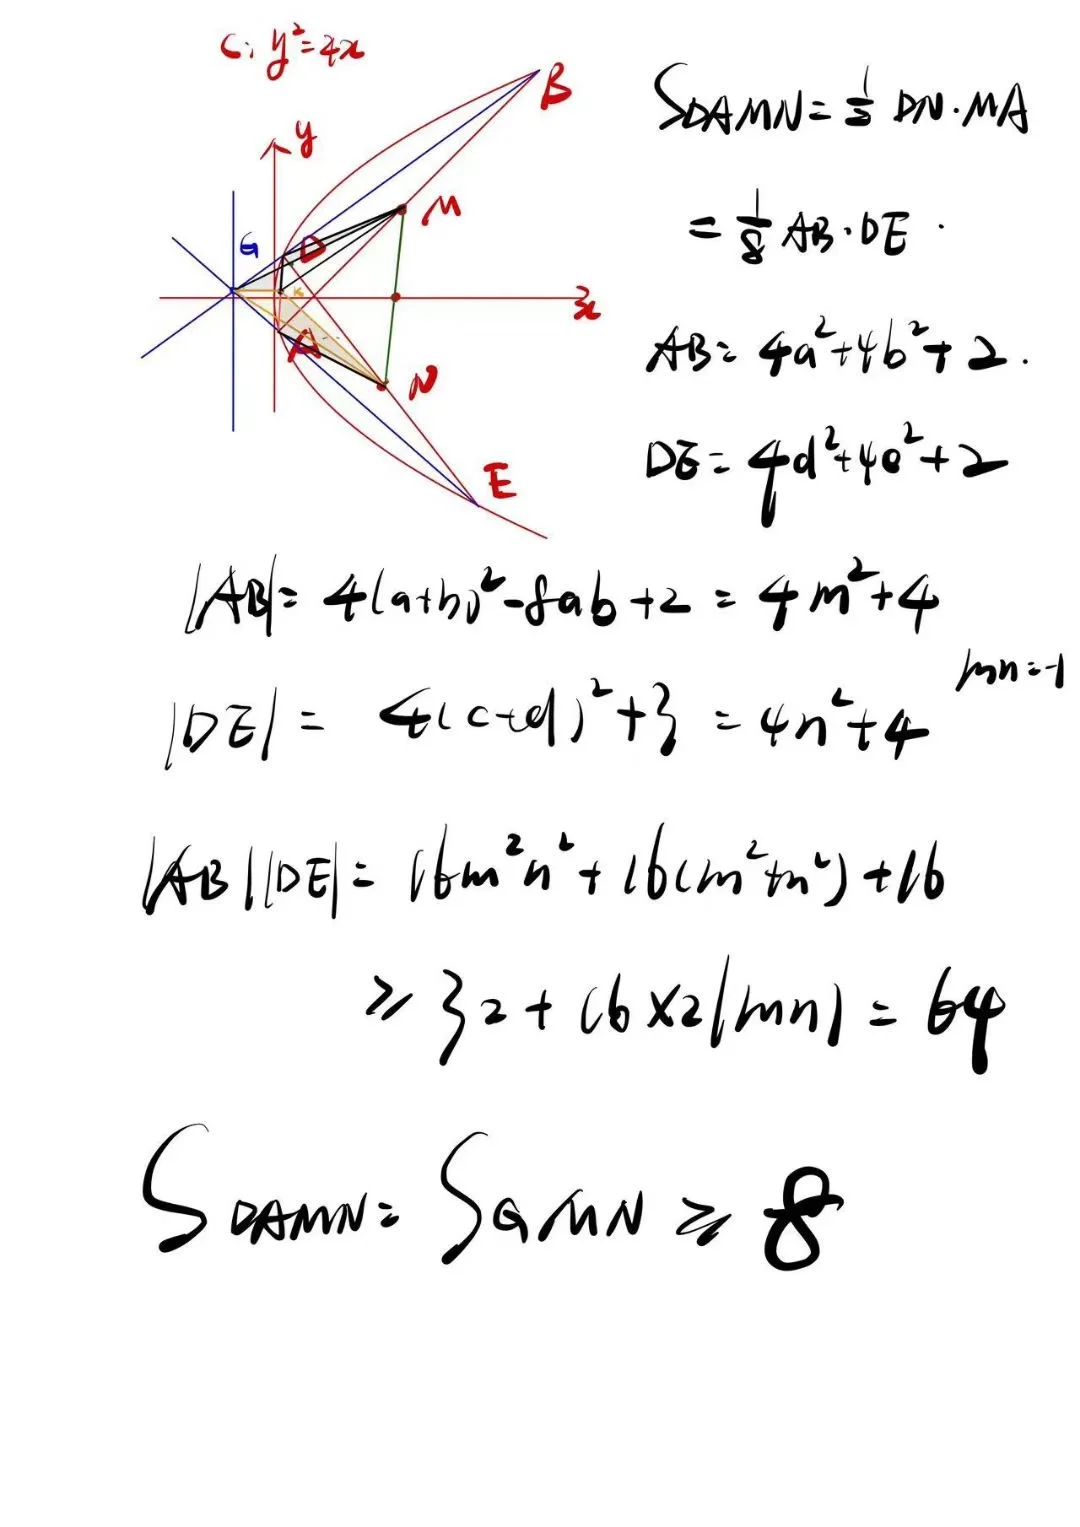 C: y²=4x
B
y
M
G
D
K
x
A
N
E
S DAMN = ½ DN·MA
= ⅛ AB·DE ·
AB = 4a²+4b²+2.
DE = 4d²+4e²+2
|AB| = 4(a+b)²-8ab+2 = 4m²+4
mn=-1
|DE| = 4(c+d)²+} = 4n²+4
|AB||DE| = 16m²n²+16(m²+n²)+16
≥ 32+16×2|mn| = 64
S DAMN = S GMN ≥ 8